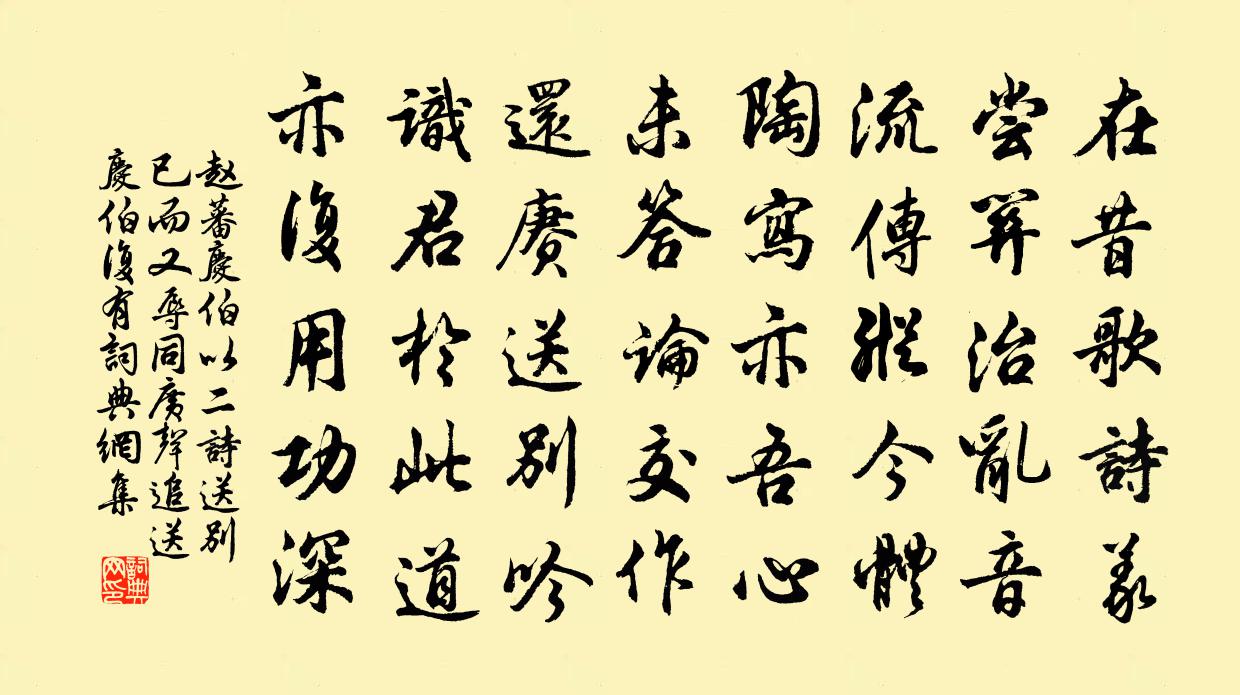 在昔歌詩義
尝關治亂音
流傳縱今體
陶寫亦吾心
未答論交作
還賡送別吟
識君於此道
亦復用功深
赵蕃慶伯以二詩送別
已而又辱同廣聲追送
慶伯復有詞典網集
詞典网印